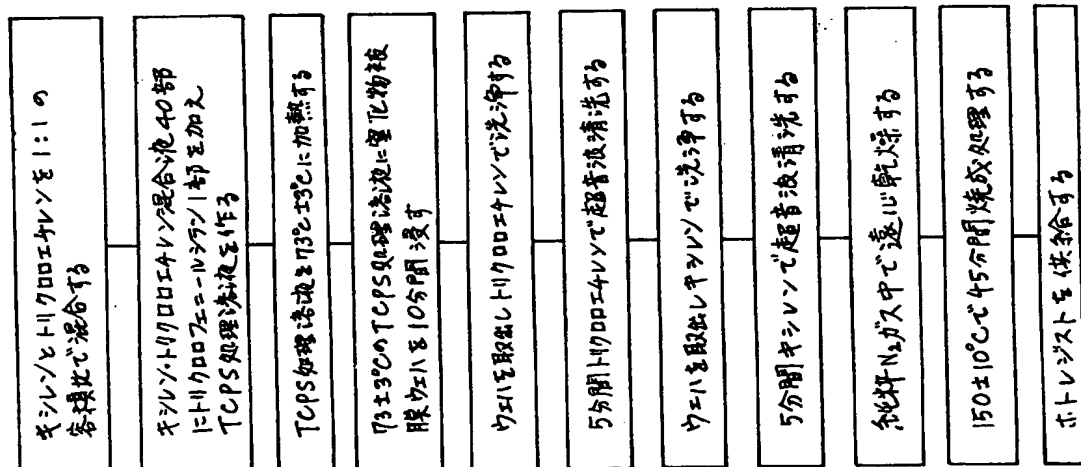 キシレンとトリクロロエチレンを1:1の
容積比で混合する
キシレン・トリクロロエチレン混合液40部
にトリクロロフェニールシラン1部を加え
TCPS処理溶液を作る
TCPS処理溶液を73℃±3℃に加熱する
73±3℃のTCPS処理溶液に窒化物被
膜ウエハを10分間浸す
ウエハを取出しトリクロロエチレンで洗浄する
5分間トリクロロエチレンで超音波清洗する
ウエハを取出しキシレンで洗浄する
5分間キシレンで超音波清洗する
純粋N₂ガス中で遠心乾燥する
150±10℃で45分間焼成処理する
ホトレジストを供給する